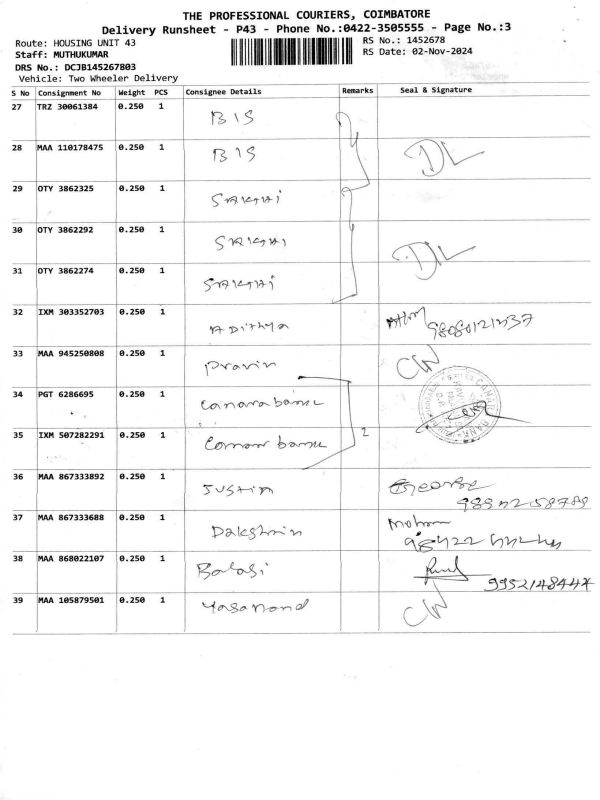 THE PROFESSIONAL COURIERS, COIMBATORE
Delivery Runsheet - P43 - Phone No.:0422-3505555 - Page No.:3
Route: HOUSING UNIT 43
RS No.: 1452678
Staff: MUTHUKUMAR
RS Date: 02-Nov-2024
DRS No.: DCJB145267803
Vehicle: Two Wheeler Delivery
S No Consignment No Weight PCS Consignee Details Remarks Seal & Signature
27 TRZ 30061384 0.250 1 BIS
28 MAA 110178475 0.250 1 BIS DL
29 OTY 3862325 0.250 1 SAKTHI
30 OTY 3862292 0.250 1 SAKTHI
31 OTY 3862274 0.250 1 SAKTHI DL
32 IXM 303352703 0.250 1 ADITHYA
33 MAA 945250808 0.250 1 Pravin
34 PGT 6286695 0.250 1 Canara bank
35 IXM 507282291 0.250 1 bank 2
36 MAA 867333892 0.250 1 Justin George
37 MAA 867333688 0.250 1 Mohan
38 MAA 868022107 0.250 1 Balaji
39 MAA 105879501 0.250 1